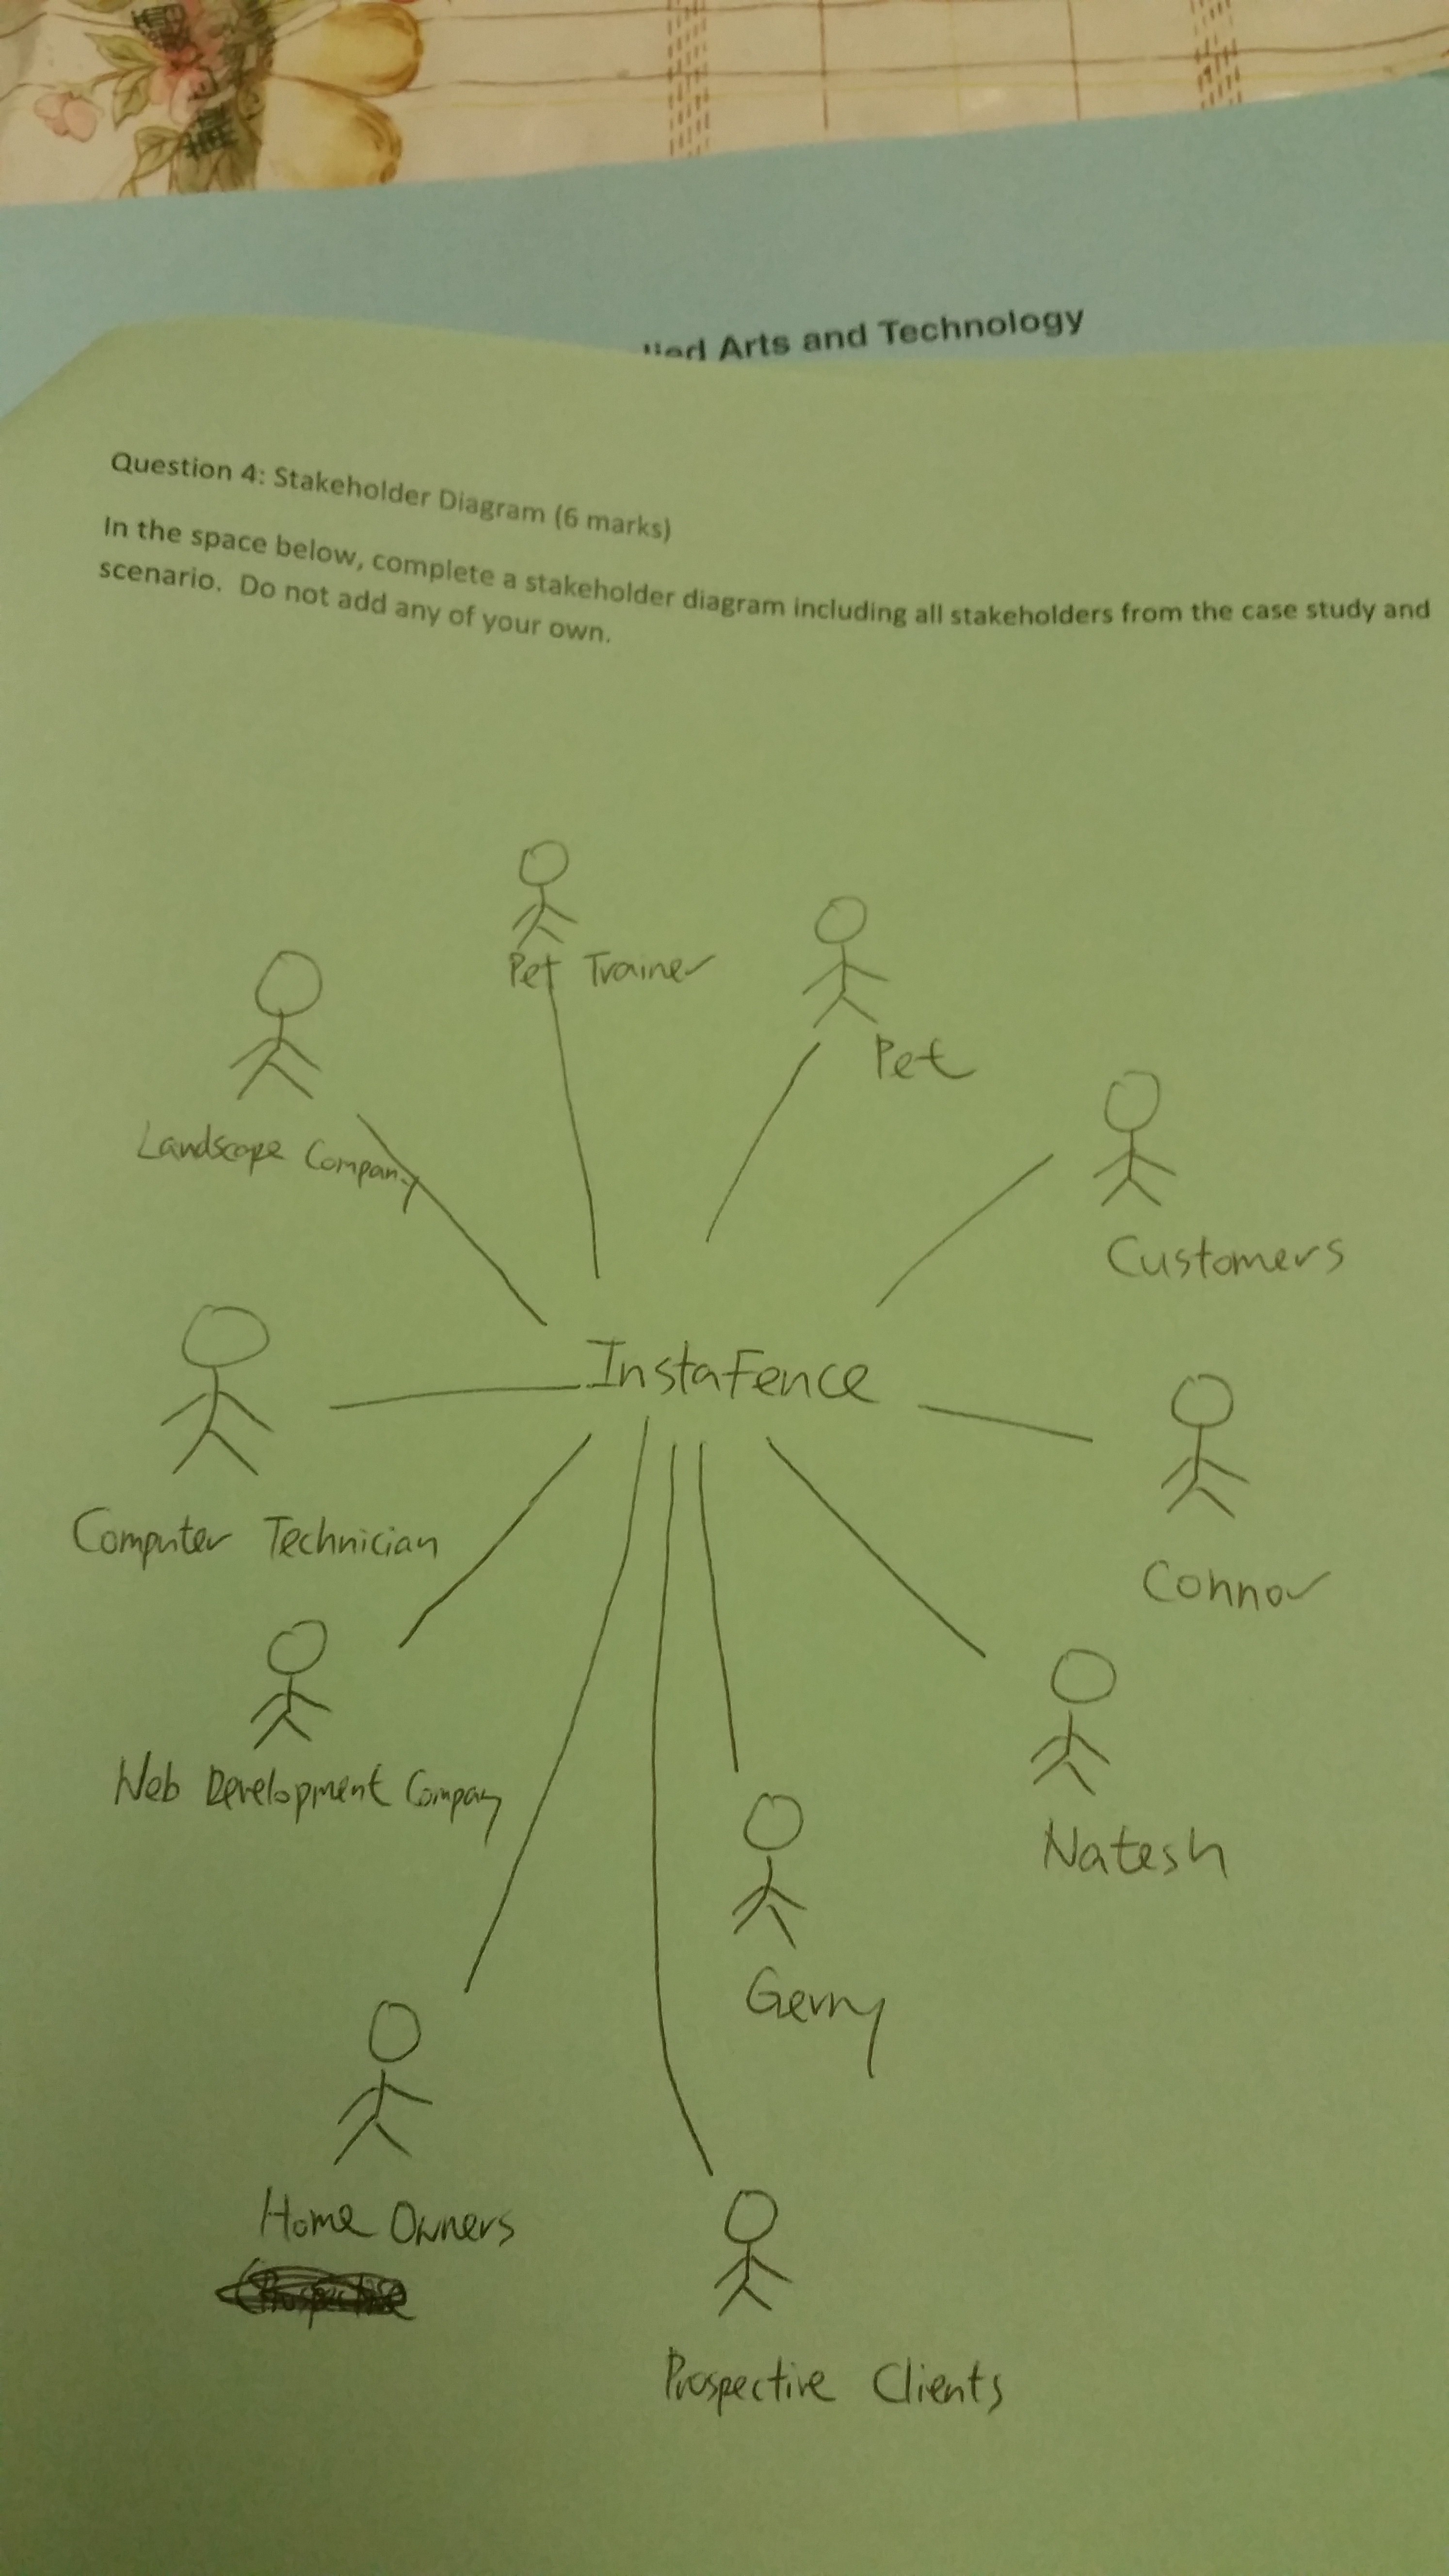 Arts and Technology
Question 4: Stakeholder Diagram (6 marks)
In the space below, complete a stakeholder diagram including all stakeholders from the case study and
scenario. Do not add any of your own.
Pet Trainer
Pet
Landscape Company
Customers
InstaFence
Computer Technician
Connor
Web Development Company
Natesh
Gerry
Home Owners
Prospective Clients